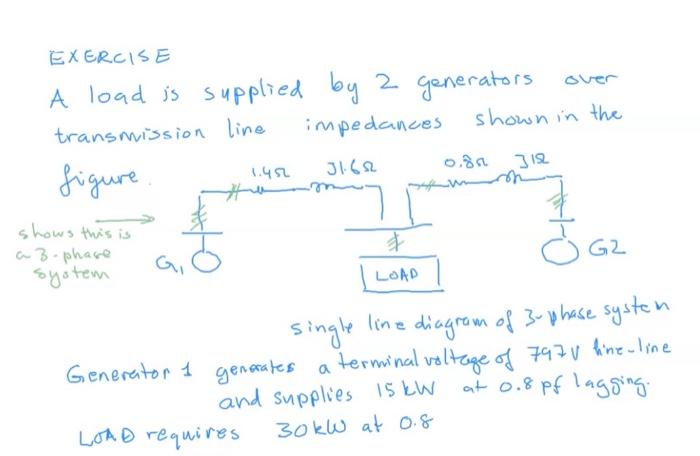 EXERCISE
A load is supplied by 2 generators over
transmission line impedances shown in the
figure.
1.4Ω J1.6Ω
0.8Ω J1Ω
shows this is
a 3-phase
system
G1
LOAD
G2
single line diagram of 3-phase system
Generator 1 generates a terminal voltage of 797V line-line
and supplies 15kW at 0.8 pf lagging.
LOAD requires 30kW at 0.8